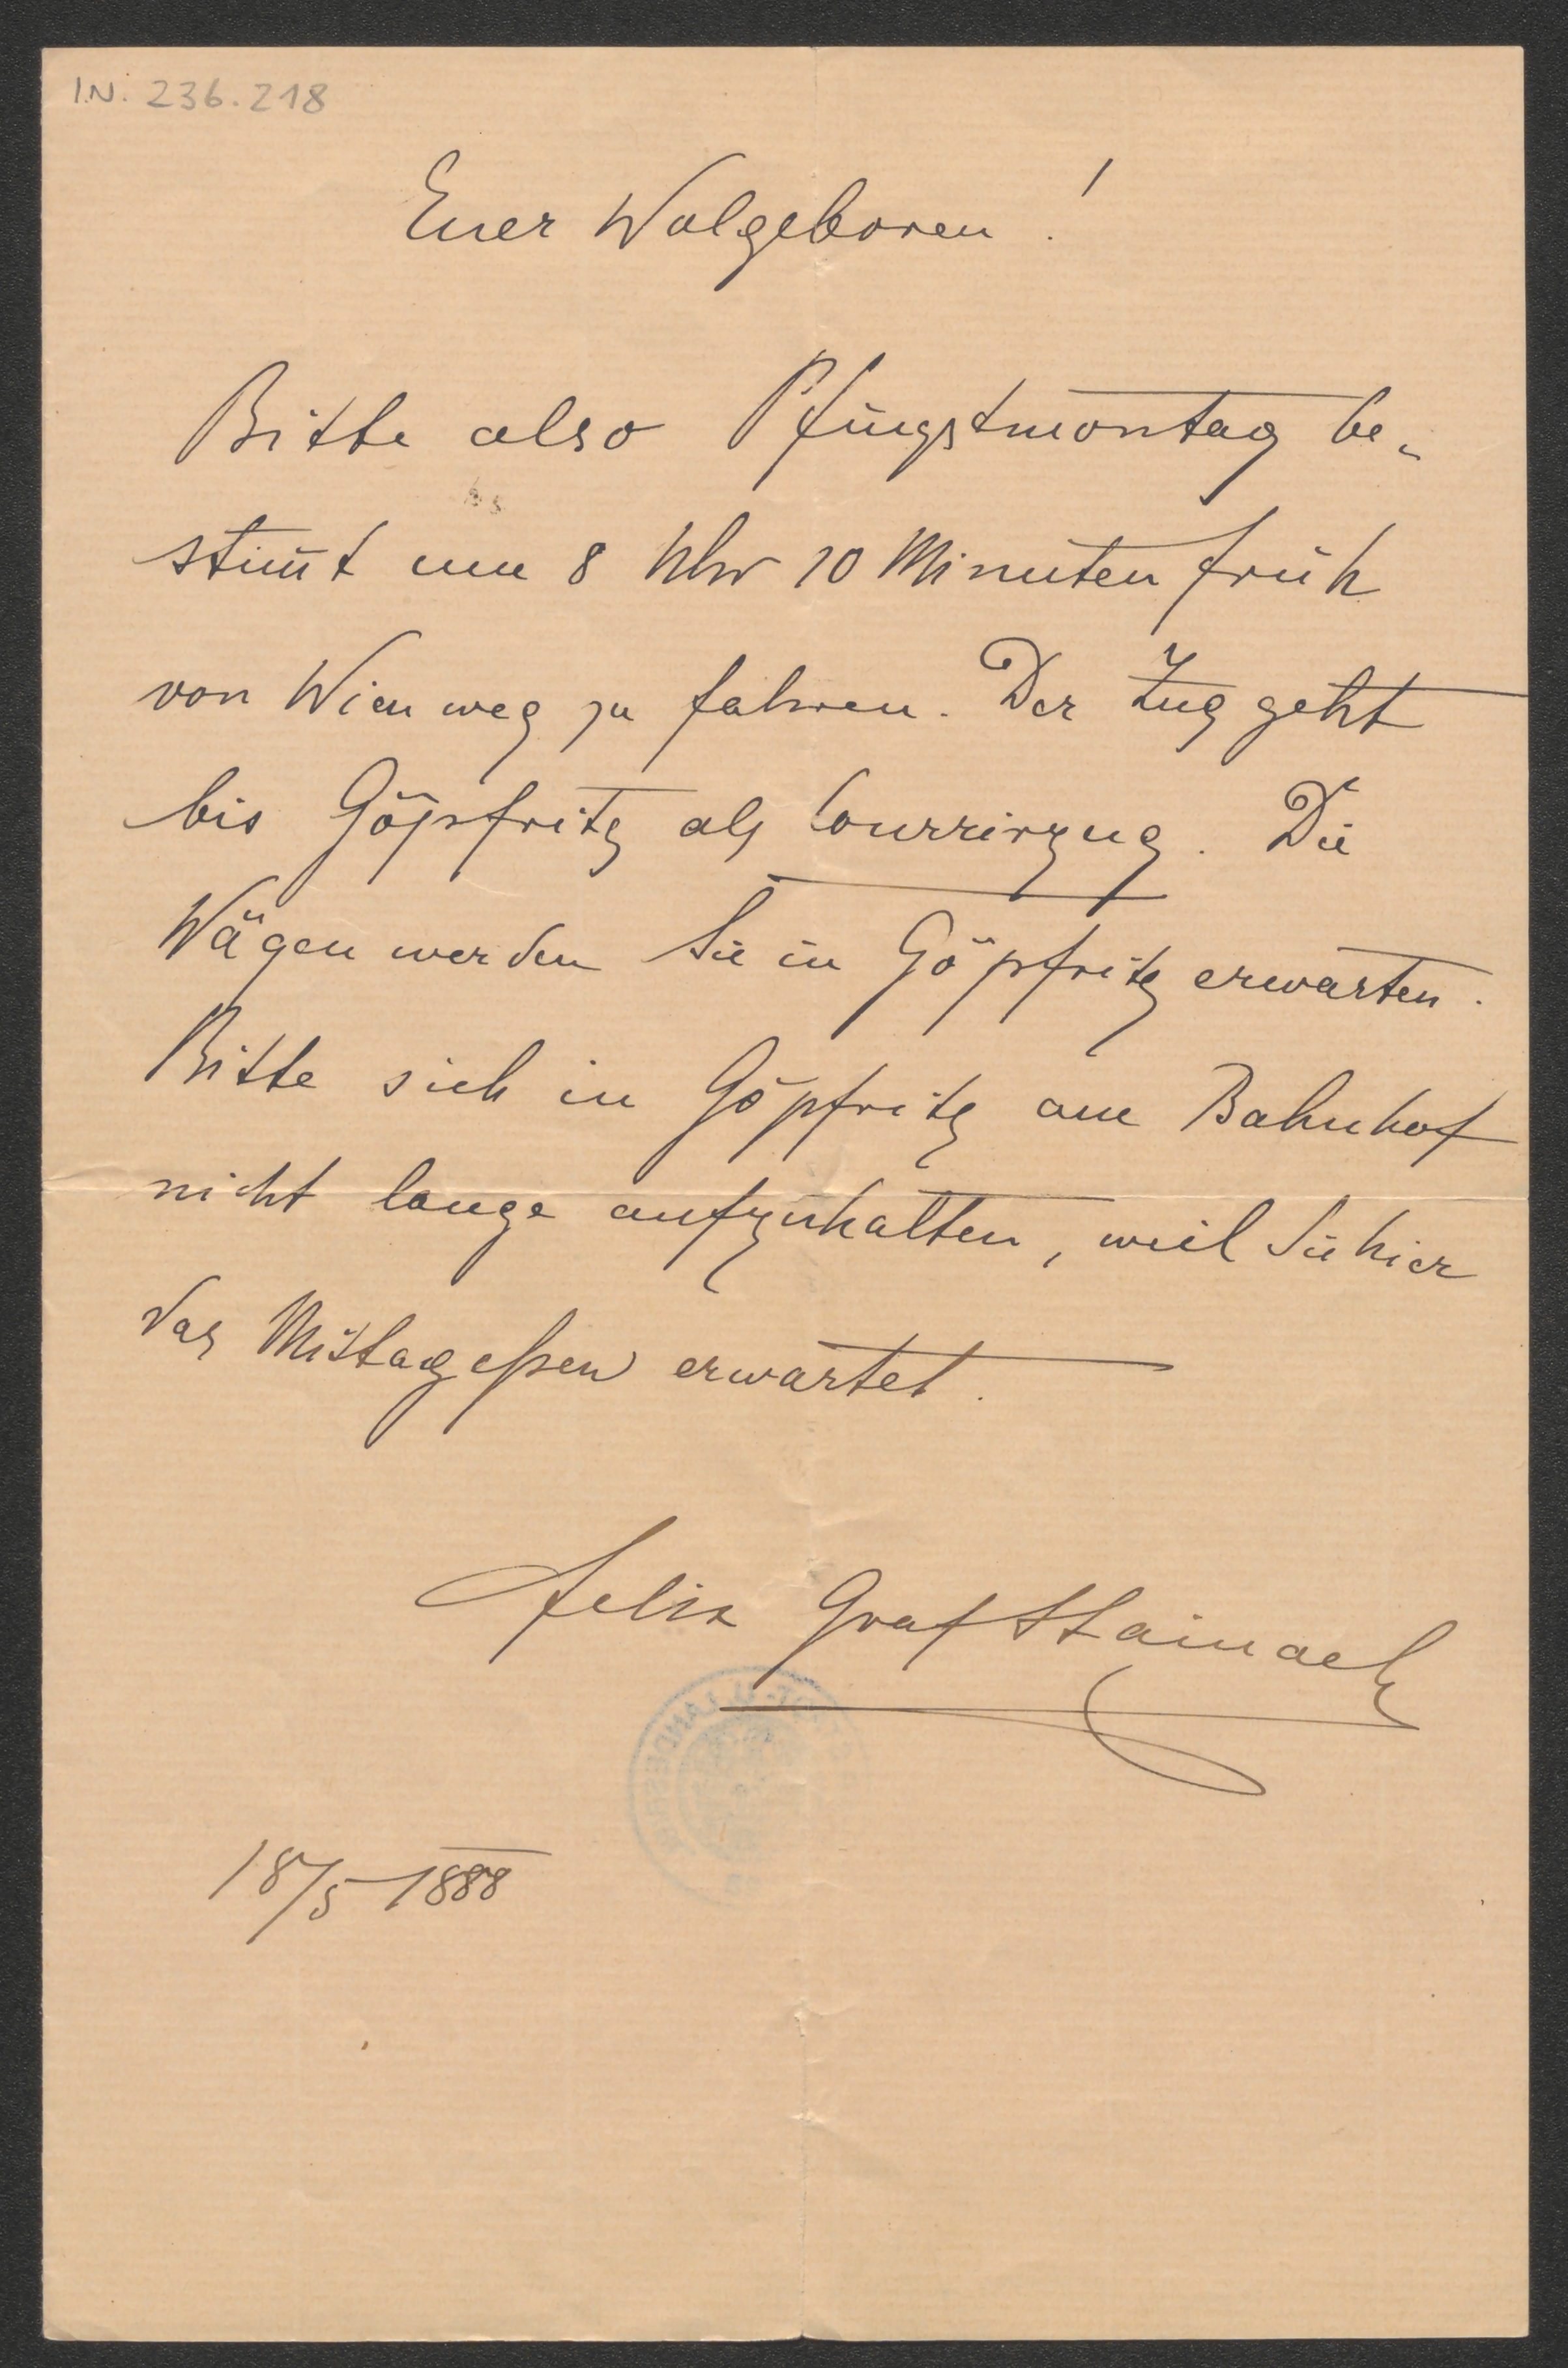 I.N. 236.218
Euer Wolgeboren!
Bitte also Pfingstmontag be-
stim̅t um 8 Uhr 10 Minuten früh
von Wien weg zu fahren. Der Zug geht
bis Göpfritz als Courrirzug. Die
Wägen werden Sie in Göpfritz erwarten.
Bitte sich in Göpfritz am Bahnhof
nicht lange aufzuhalten, weil Sie hier
das Mittagessen erwartet.
Felix Graf
18/5 1888